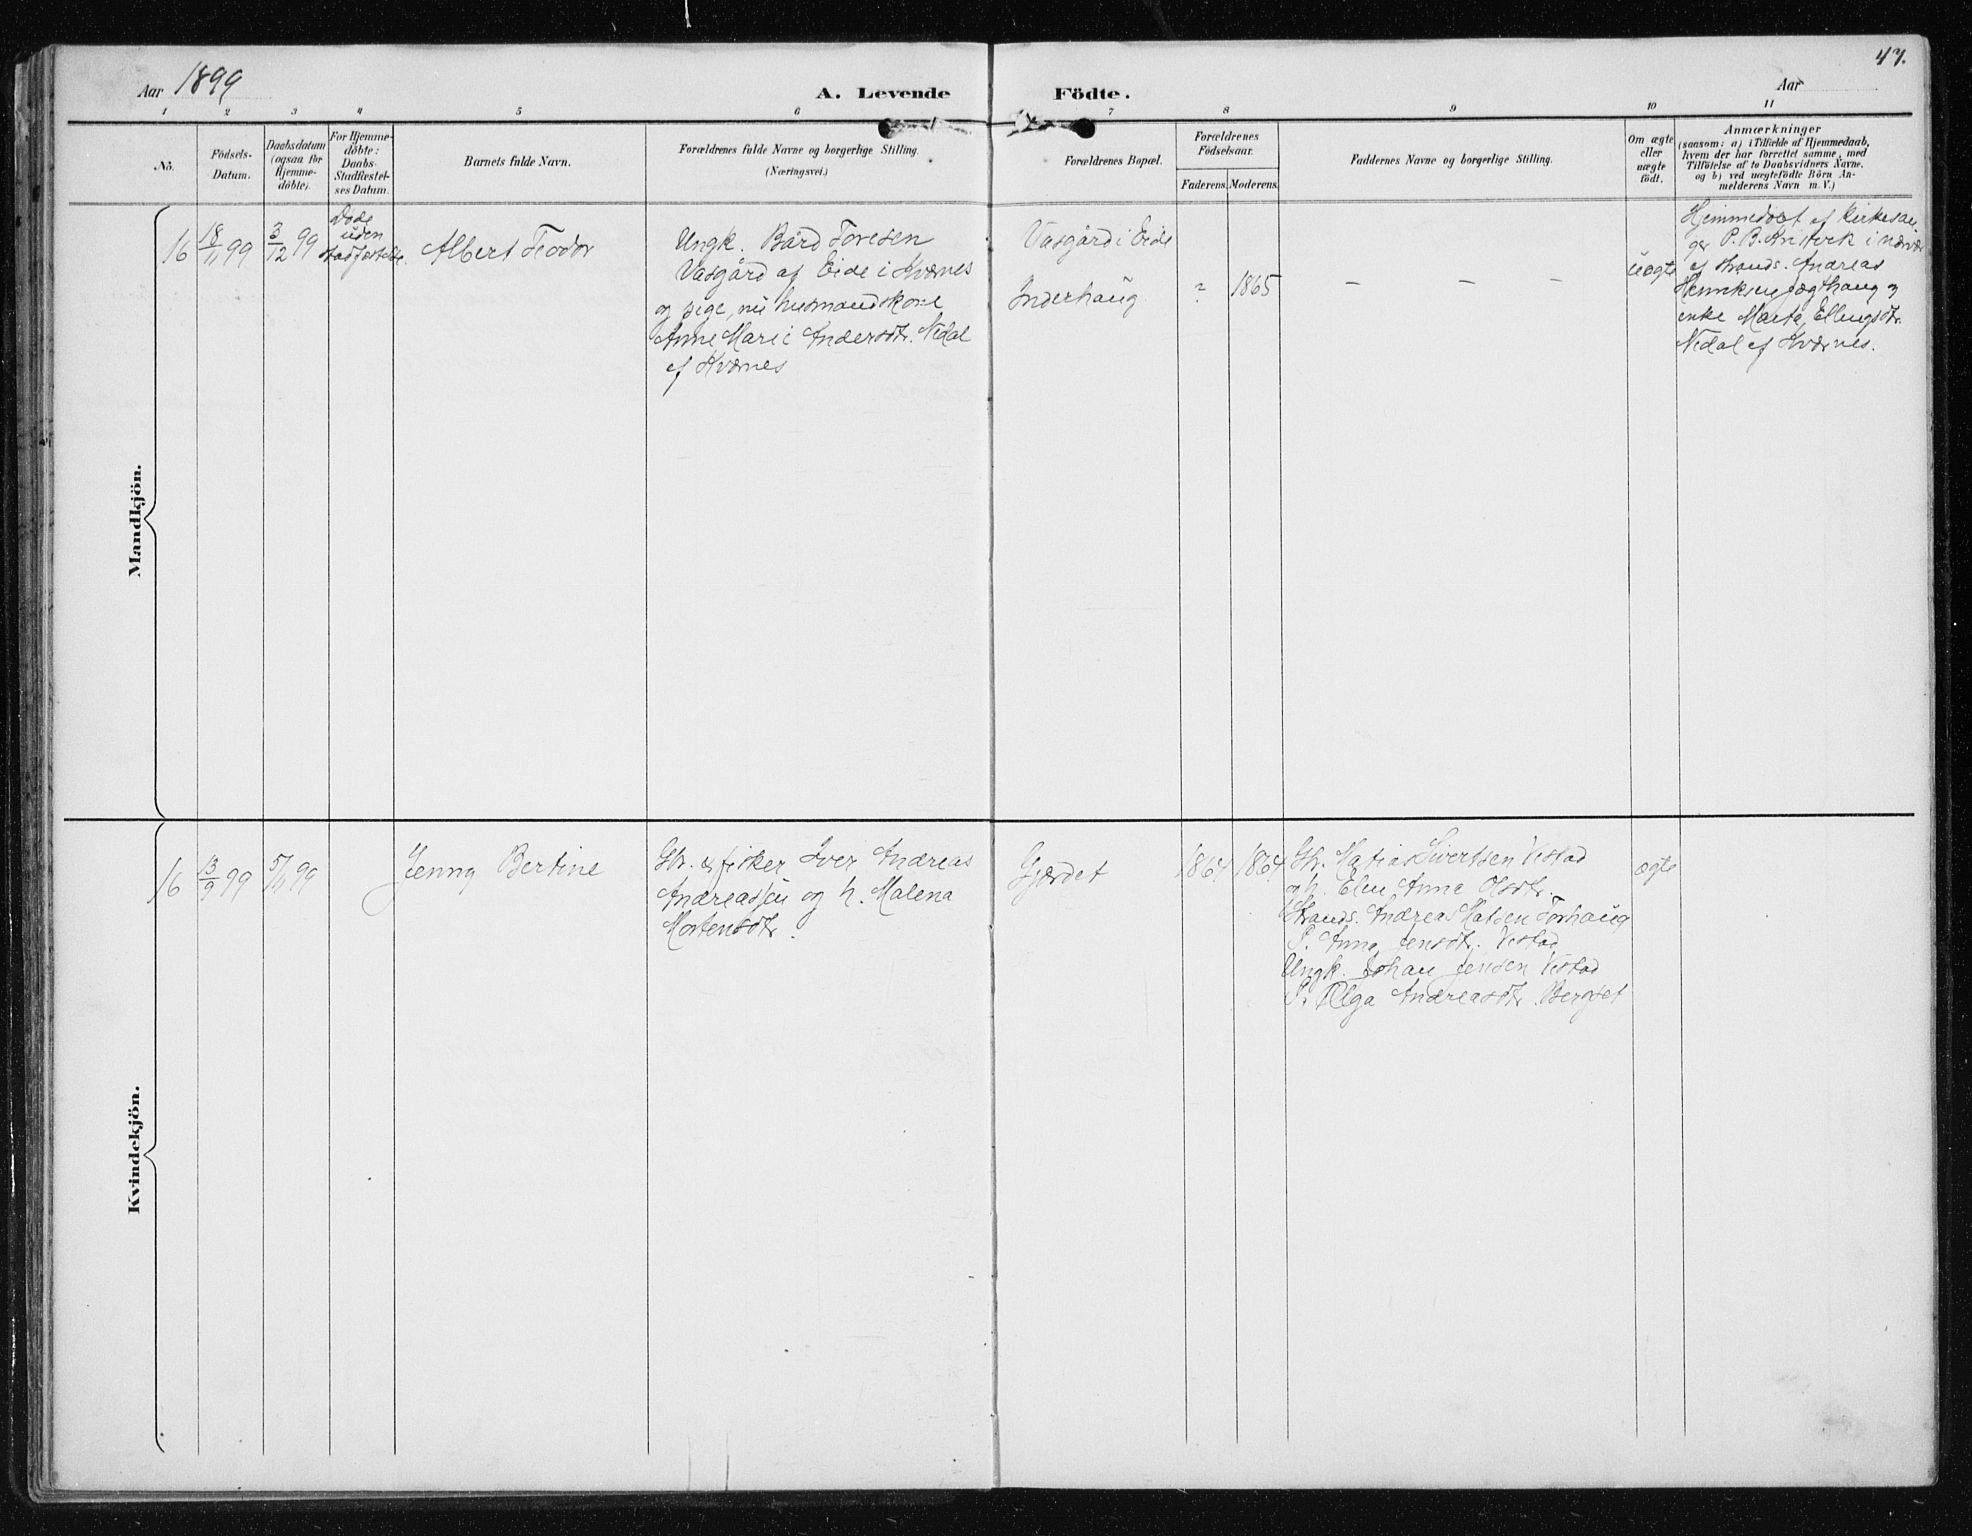 47.
Aar 1899
A. Levende Födte.
Aar
1 2 3 4 5 6 7 8 9 10 11
No.
Födsels-
Datum.
Daabsdatum
(ogsaa for
Hjemme-
döbte).
For Hjemme-
döbte:
Daabs-
Stadfæstel-
ses Datum.
Barnets fulde Navn.
Forældrenes fulde Navne og borgerlige Stilling.
(Næringsvei.)
Forældrenes Bopæl.
Forældrenes
Födselsaar.
Faderens. Moderens.
Faddernes Navne og borgerlige Stilling.
Om ægte
eller
uægte
födt.
Anmærkninger
(saasom: a) i Tilfælde af Hjemmedaab,
hvem der har forrettet samme, med
Tilföielse af to Daabsvidners Navne,
og b) ved uægtefödte Börn An-
melderens Navn m. V.)
Mandkjön.
16
18/11 99
3/12 99
Döde
uden
stadfæstelse.
Albert Teodor
Ungk. Bård Toresen
Vasgård af Eide i Kværnes
og pige, nu husmandskone
Anne Marie Andersdtr. Nedal
af Kværnes
Vasgård i Eide
Inderhaug
? 1865
– – –
uægte
Hjemmedøbt af Kirkesan-
ger P. B. i nærvær
af strands. Andreas
Henriksen Jægthaug og
enke Marta Ellingsdtr.
Nedal af Kværnes.
Kvindekjön.
16
13/9 99
5/11 99
Jenny Bertine
Gbr. & fisker Iver Andreas
Andreassen og h. Malena
Mortensdtr.
Gjærdet
1864 1864
Gbr. Matias Sivertsen Vestad
og h. Elen Anne Olsdtr.
Strands. Andreas Matsen Torhaug
P. Anne Jensdtr. Vestad
Ungk. Johan Jensen Vestad
P. Olga Andreasdtr. Bergset
ægte